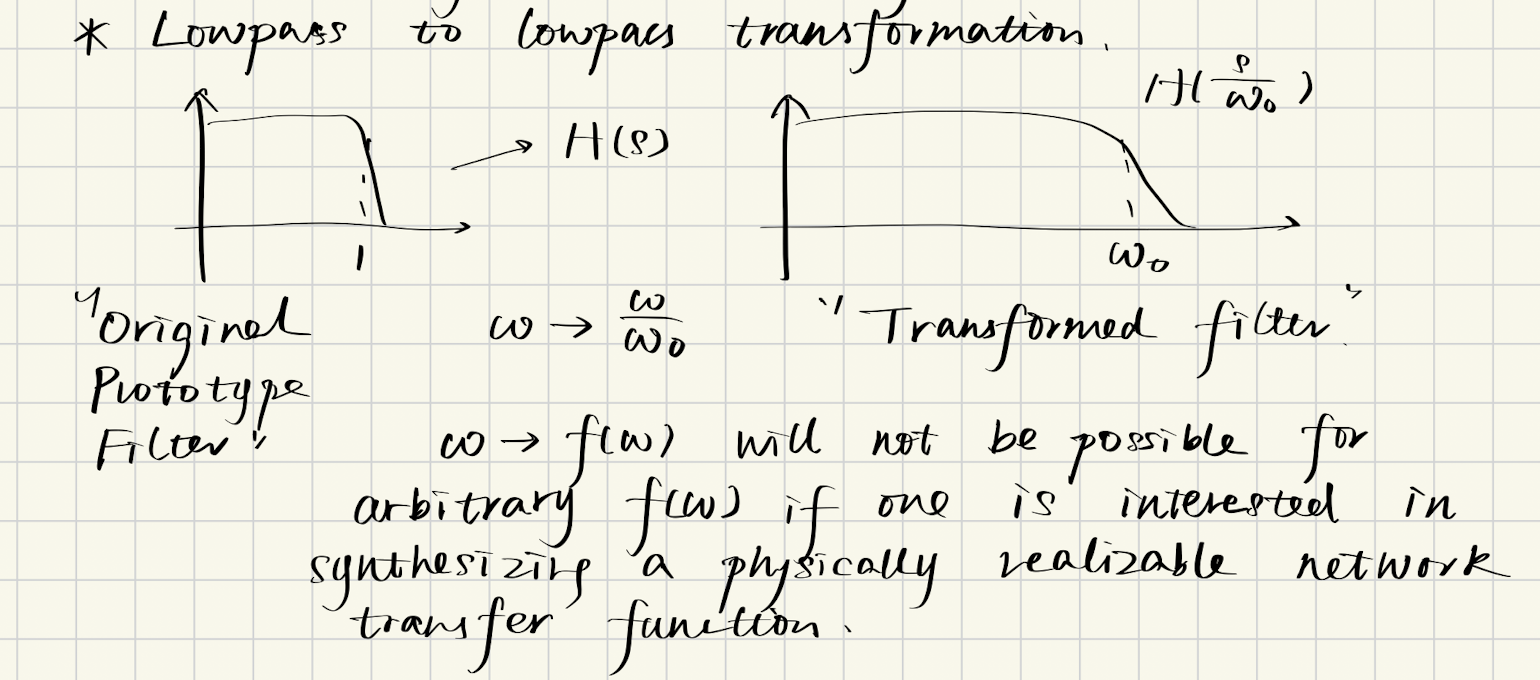 * Lowpass to lowpass transformation.
H(s/ω₀)
→ H(s)
1
ω₀
"Original
Prototype
Filter"
ω → ω/ω₀
"Transformed filter".
ω → f(ω) will not be possible for
arbitrary f(ω) if one is interested in
synthesizing a physically realizable network
transfer function.